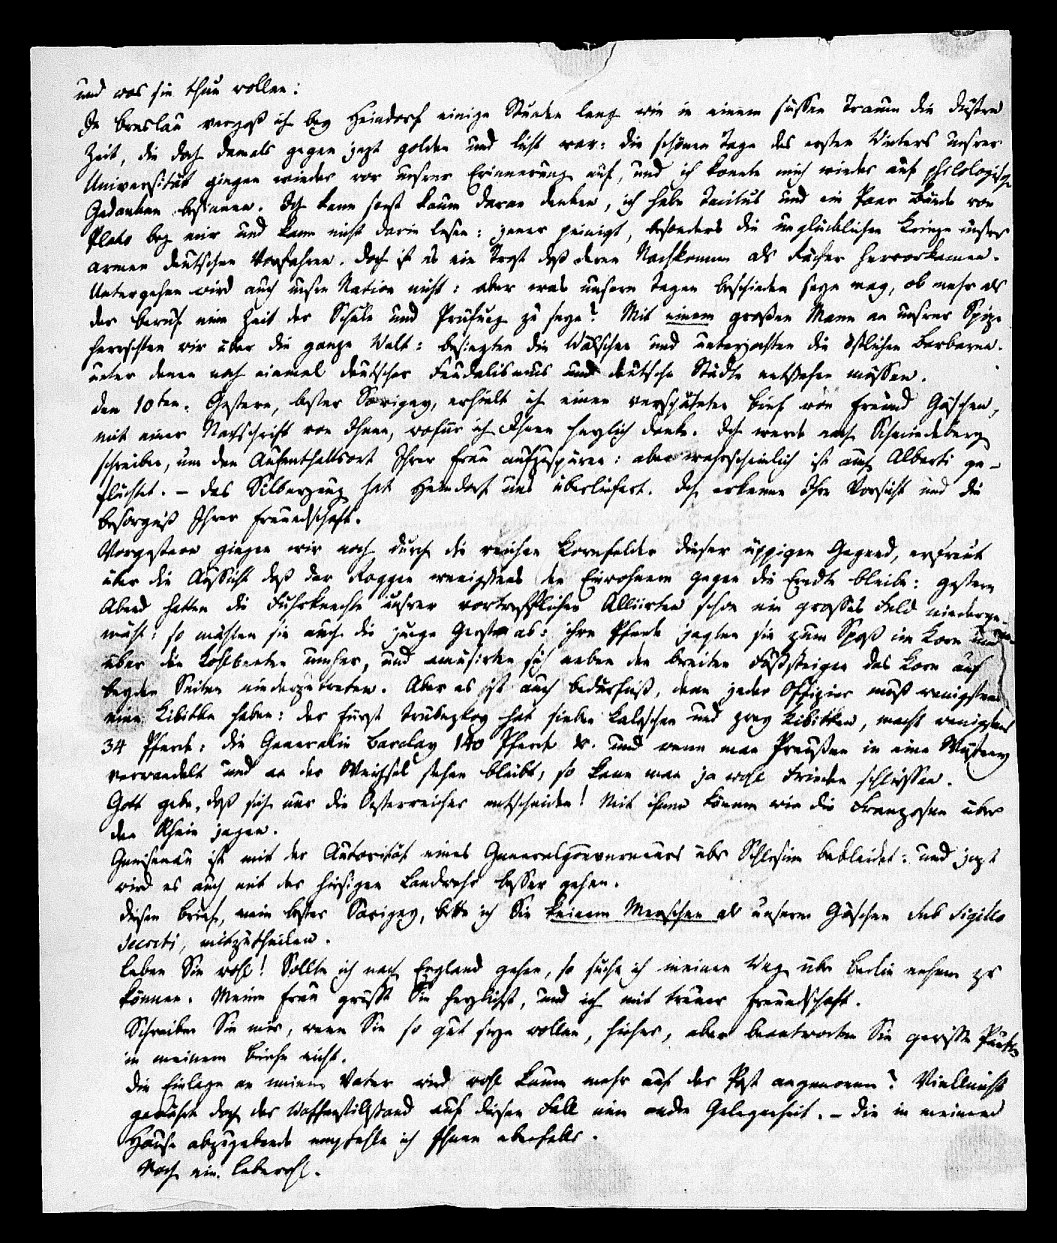 und was sie thun wollen:
In Breslau vergaß ich bey Heindorf einige Stunden lang wie in einem süssen Traum die düstre
Zeit, die doch damals gegen jezt golden und licht war: die schönen Tage des ersten Winters unsrer
Universität giengen wieder vor unsrer Erinnerung auf, und ich konnte mich wieder auf philologische
Gedanken besinnen. Ich kann sonst kaum daran denken, ich habe Tacitus und ein Paar Bände von
Plato bey mir und kann nicht darin lesen: jener peinigt, besonders die unglücklichen Kriege unsrer
armen deutschen Vorfahren. Doch ist es ein Trost daß deren Nachkommen als Rächer hervorkamen.
Untergehen wird auch unsre Nation nicht: aber was unsern Tagen beschieden seyn mag, ob mehr als
der Beruf eine Zeit der Schule und Prüfung zu seyn? Mit einem großen Mann an unsrer Spize
herrschten wir über die ganze Welt: besiegten die Wälschen und unterjochten die östlichen Barbaren.
unter denen noch einmal deutscher Feudalismus und deutsche Städte entstehen müssen.
den 10ten. Gestern, bester Savigny, erhielt ich einen verspäteten Brief von Freund Göschen,
mit einer Nachschrift von Ihnen, wofür ich Ihnen herzlich danke. Ich werde nach Schmiedeberg
schreiben, um den Aufenthaltsort Ihrer Frau aufzuspüren: aber wahrscheinlich ist auch Alberti ge-
flüchtet. – Das Silberzeug hat Heindorf uns überliefert. Ich erkenne Ihre Vorsicht und die
Besorgniß Ihrer Freundschaft.
Vorgestern giengen wir noch durch die reichen Kornfelder dieser üppigen Gegend, erfreut
über die Aussicht daß der Roggen wenigstens den Einwohnern gegen die Erndte bleibe: gestern
Abend hatten die Fuhrknechte unsrer vortrefflichen Alliirten schon ein grosses Feld niederge-
mäht: so mähten sie auch die junge Gerste ab: ihre Pferde jagten sie zum Spaß im Korn und
über die Kohlbeeten umher, und amüsirten sich neben den breiten Fußsteigen das Korn auf
beyden Seiten niederzutreten. Aber es ist auch Bedürfniß, denn jeder Offizier muß wenigstens
eine Kibitke haben: der Fürst Trubezkoy hat sieben Kaleschen und zwey Kibitken, macht wenigstens
34 Pferde: die Generalin Barclay 140 Pferde &. und wenn man Preußen in eine Wüsteney
verwandelt und an der Weichsel stehen bleibt, so kann man ja wohl Frieden schliessen.
Gott gebe, daß sich nur die Oesterreicher entscheiden! Mit ihnen können wir die Franzosen über
den Rhein jagen.
Gneisenau ist mit der Autorität eines Generalgouverneurs über Schlesien bekleidet: und jezt
wird es auch mit der hiesigen Landwehr besser gehen.
Diesen Brief, mein bester Savigny, bitte ich Sie keinem Menschen als unserm Göschen sub sigillo
secreti, mitzutheilen.
Leben Sie wohl! Sollte ich nach England gehen, so suche ich meinen Weg über Berlin nehmen zu
können. Meine Frau grüßt Sie herzlichst, und ich mit treuer Freundschaft.
Schreiben Sie mir, wenn Sie so gut seyn wollen, hieher, aber beantworten Sie gewisse Punkte
in meinem Briefe nicht.
Die Einlage an meinen Vater wird wohl kaum mehr auf der Post angenommen? Vielleicht
gewährt doch der Waffenstillstand auf diesen Fall eine andre Gelegenheit. – Die in meinem
Hause abzugebende empfehle ich Ihnen ebenfalls.
Noch ein Lebewohl.